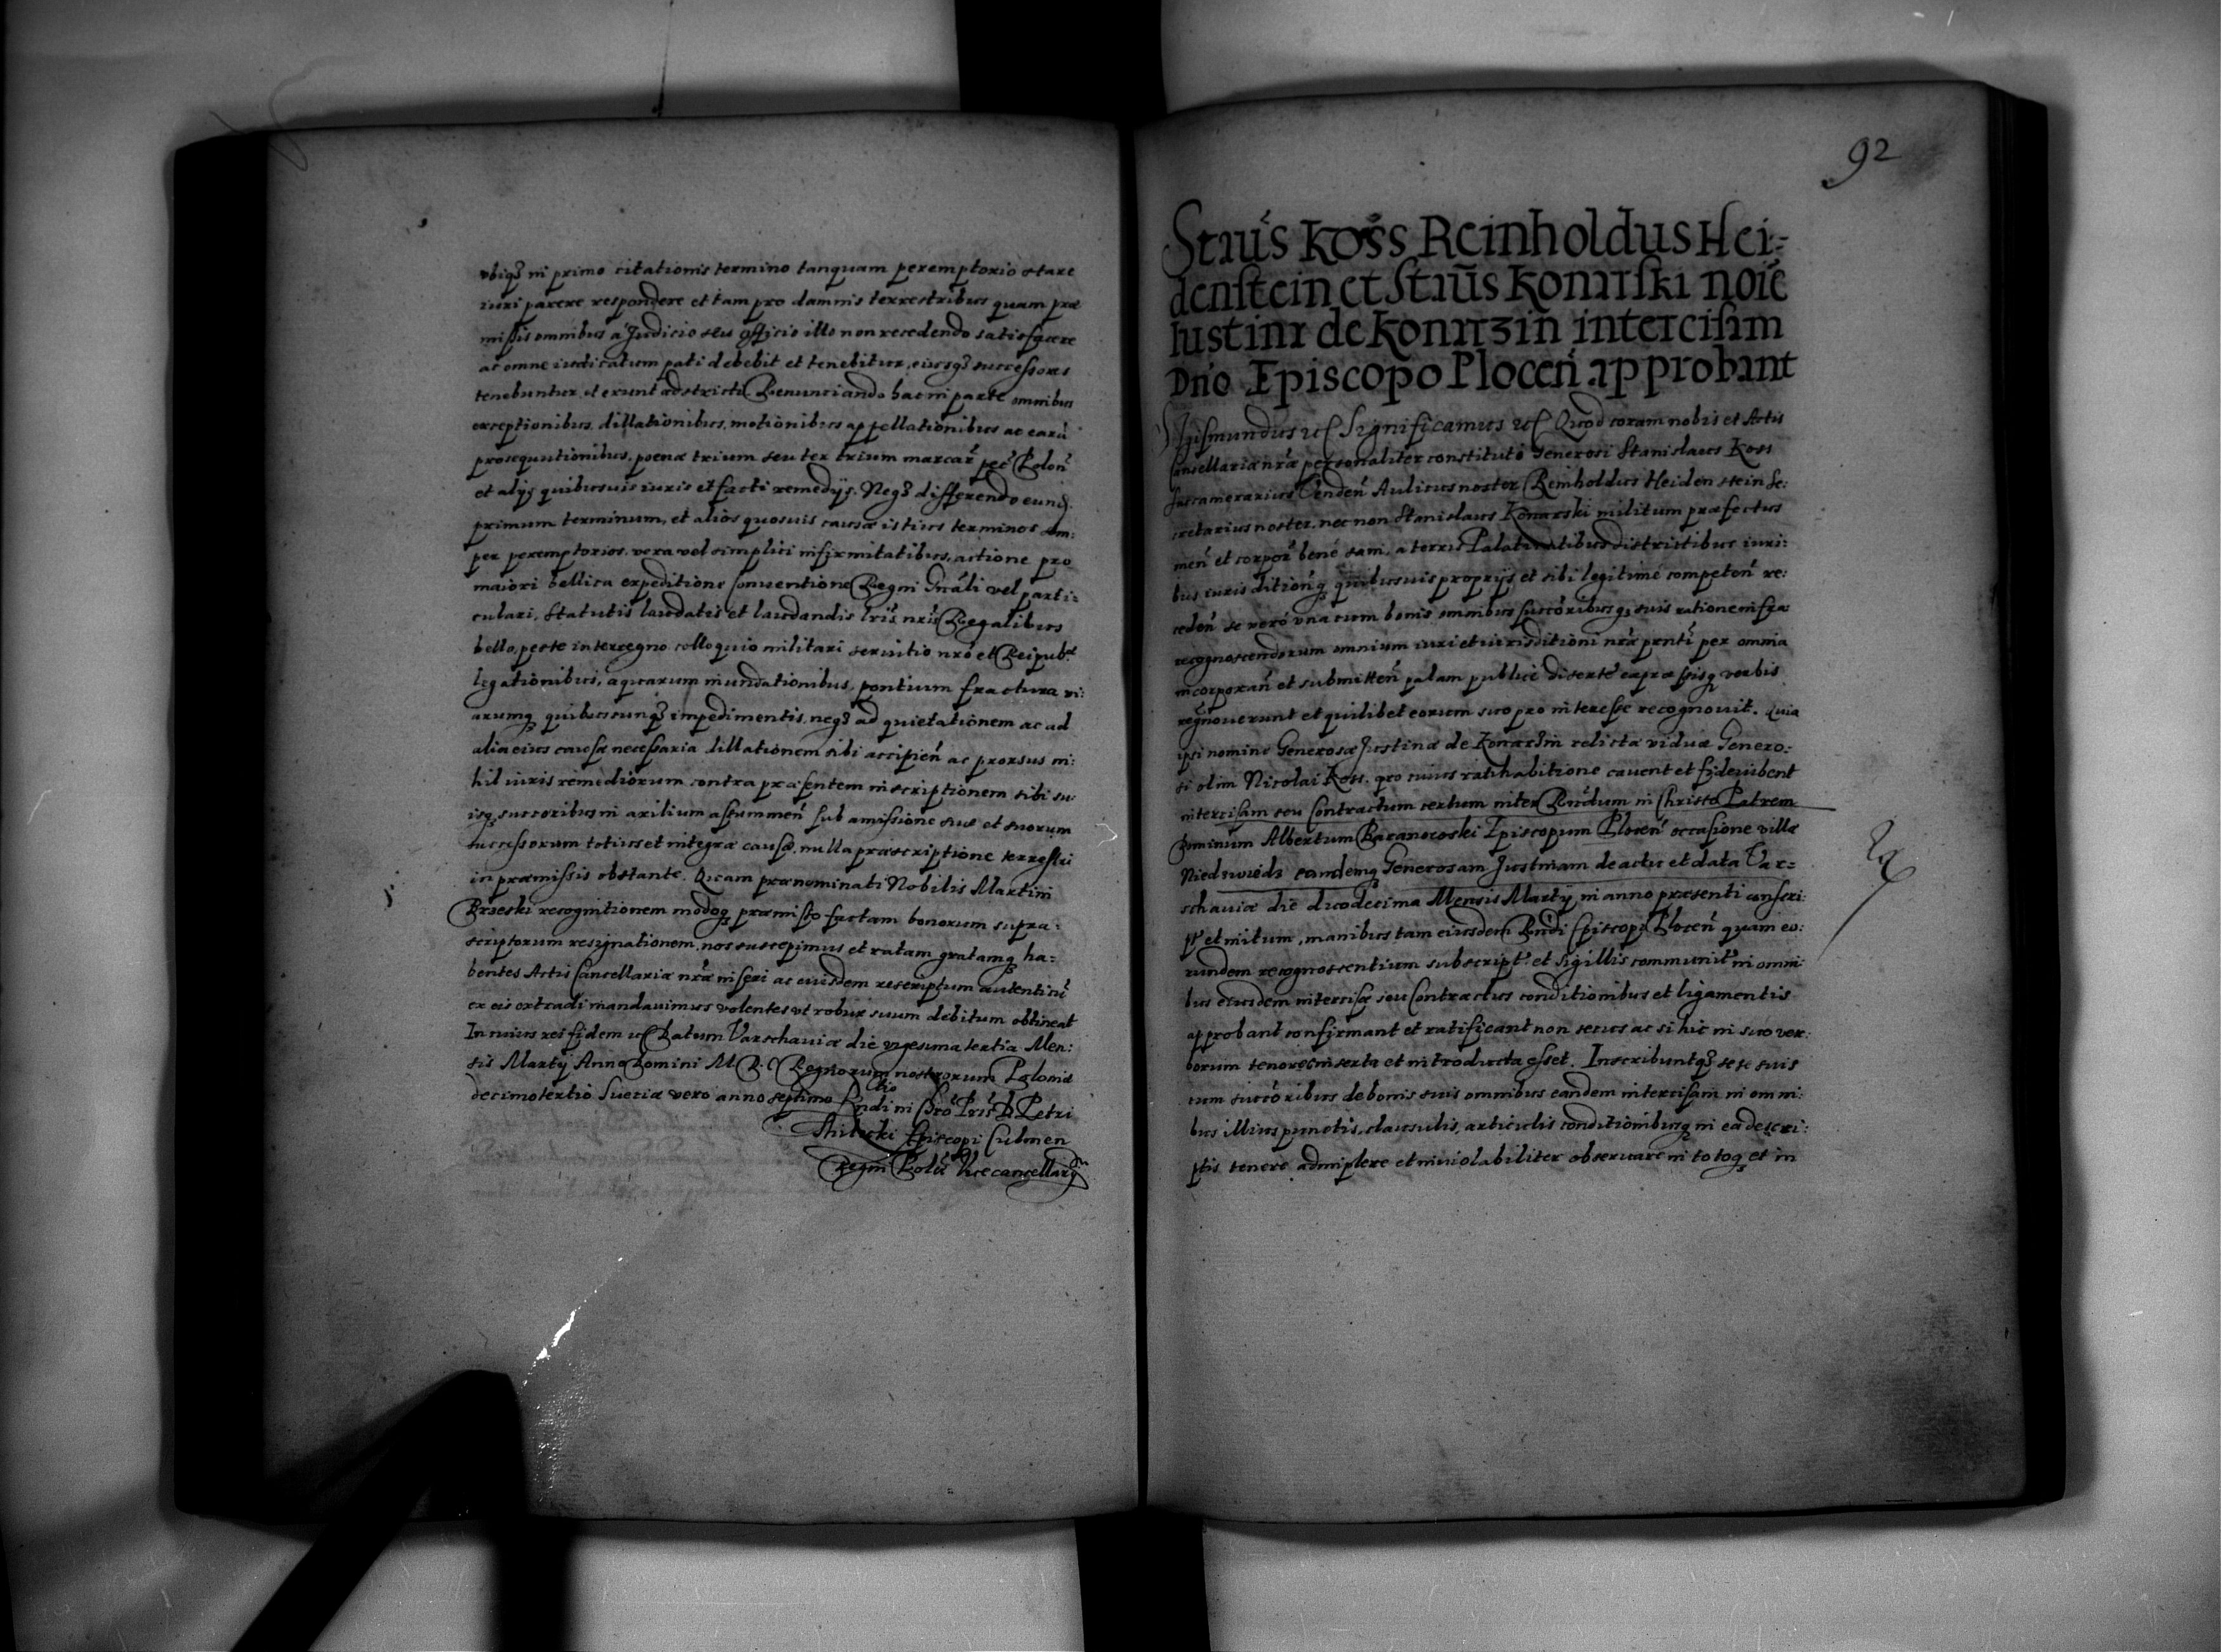 vbiq₃ in primo citationis termino tanquam peremptorio stare
iuri parere respondere et tam pro damnis terrestribus quam præ
missis omnibus a Judicio seu officio illo non recedendo satisfacere
ac omne iudicatum pati debebit et tenebitur, eiusq₃ successores
tenebuntur et erunt adstricti. Renunciando hac in parte omnibus
exceptionibus, dillationibus, motionibus appellationibus ac earũ
prosequutionibus, poenæ trium seu ter trium marcar̃ pec̃ Polon̄
et alijs quibusuis iuris et facti remedijs. Neq₃ differendo eund.
primum terminum, et alios quosuis causæ istius terminos sem:
per peremptorios, vera vel simplici infirmitatibus, actione pro
maiori bellica expeditione Conuentione Regni Gñali vel parti:
culari, Statutis laudatis et laudandis lr̃is nr̃is Regalibus
bello, peste interregno colloquio militari seruitio nr̃o et Reipub.
legationibus, aquarum inundationibus, pontium fractura vi:
arumq₃ quibuscunq₃ impedimentis, neq₃ ad quietationem ac ad
alia eius causæ necessaria dillationem sibi accipien̄ ac prorsus ni:
hil iuris remediorum contra præsentem inscriptionem sibi su:
isq₃ succoribus in auxilium assummen̄ sub amissione suæ et suorum
successorum totius et integræ causæ, nulla præscriptione terrestri
in præmissis obstante. Quam prænominati Nobilis Martini
Brzeski recognitionem modoq₃ præmisso factam bonorum supra:
scriptorum resignationem, nos suscepimus et ratam gratamq₃ ha:
bentes Actis Cancellariæ nr̃æ inseri ac eiusdem rescriptum autenticũ
ex eis extradi mandauimus volentes vt robur suum debitum obtineat
In cuius rei fidem &c Datum Varschauiæ die vigesima tertia Men:
sis Martij Anno Domini M D. C Regnorum nostrorum Poloniæ
decimotertio Sueciæ vero anno septimo R̃ndi in Chr̃o Pr̃is D Petri
Tilicki Episcopi Culmen
Regni Polũ Vicecancellarij
92
Stãus Koss Reinholdus Hei:
denstein et Stãus Konarski noie
Iustinæ de Konarzin intercisam
Dn̄o Episcopo Plocen̄ approbant
Sigismundus &c Significamus &c Quod coram nobis et Actis
Cancellariæ nr̃æ personaliter constituti Generosi Stanislaus Koss
Succamerarius Venden̄ Aulicus noster Reinholdus Heidenstein Se:
cretarius noster, nec non Stanislaus Konarski militum præfectus
men̄ et corpor̃ bene sani, a terris Palatinatibus districtibus iuri:
bus iuris dition̄q₃ quibusuis proprijs et sibi legitime competen̄ re:
ceden̄ se vero vna cum bonis omnibus succoribusq₃ suis ratione infra:
recognoscendorum omnium iuri et iurisditioni nr̃æ pr̃nti per omnia
incorporan̄ et submitten̄ palam publice diserte expressisq₃ verbis
recg̃nouerunt et quilibet eorum suo pro interesse recognouit. Quia
ipsi nomine Generosæ Justinæ de Konarzin relictæ viduæ Genero:
si olim Nicolai Koss, pro cuius ratihabitione cauent et fideiubent
intercisam seu Contractum certum inter Rn̄dum in Christo Patrem
Dominum Albertum Baranowski Episcopum Plocen̄ occasione villæ
Niedzwiedz eandemq₃ Generosam Justinam de actu et data Var:
schauiæ die duodecima Mensis Martij, in anno præsenti conscri:
pt̃ et initum, manibus tam eiusdem Rn̄di Episcopi Plocen̄ quam eo:
rundem recognoscentium subscript̃ et Sigillis communit̃ in omni:
bus eiusdem intercisæ seu Contractus conditionibus et ligamentis
approbant confirmant et ratificant non secus ac si hic in suo ver:
borum tenore inserta et introducta esset. Inscribuntq₃ sese suis
cum succoribus de bonis suis omnibus eandem intercisam in omni:
bus illius punctis, clausulis, articulis conditionibusq₃ in ea descri:
ptis tenere adimplere et inuiolabiliter obseruare in totoq₃ et in